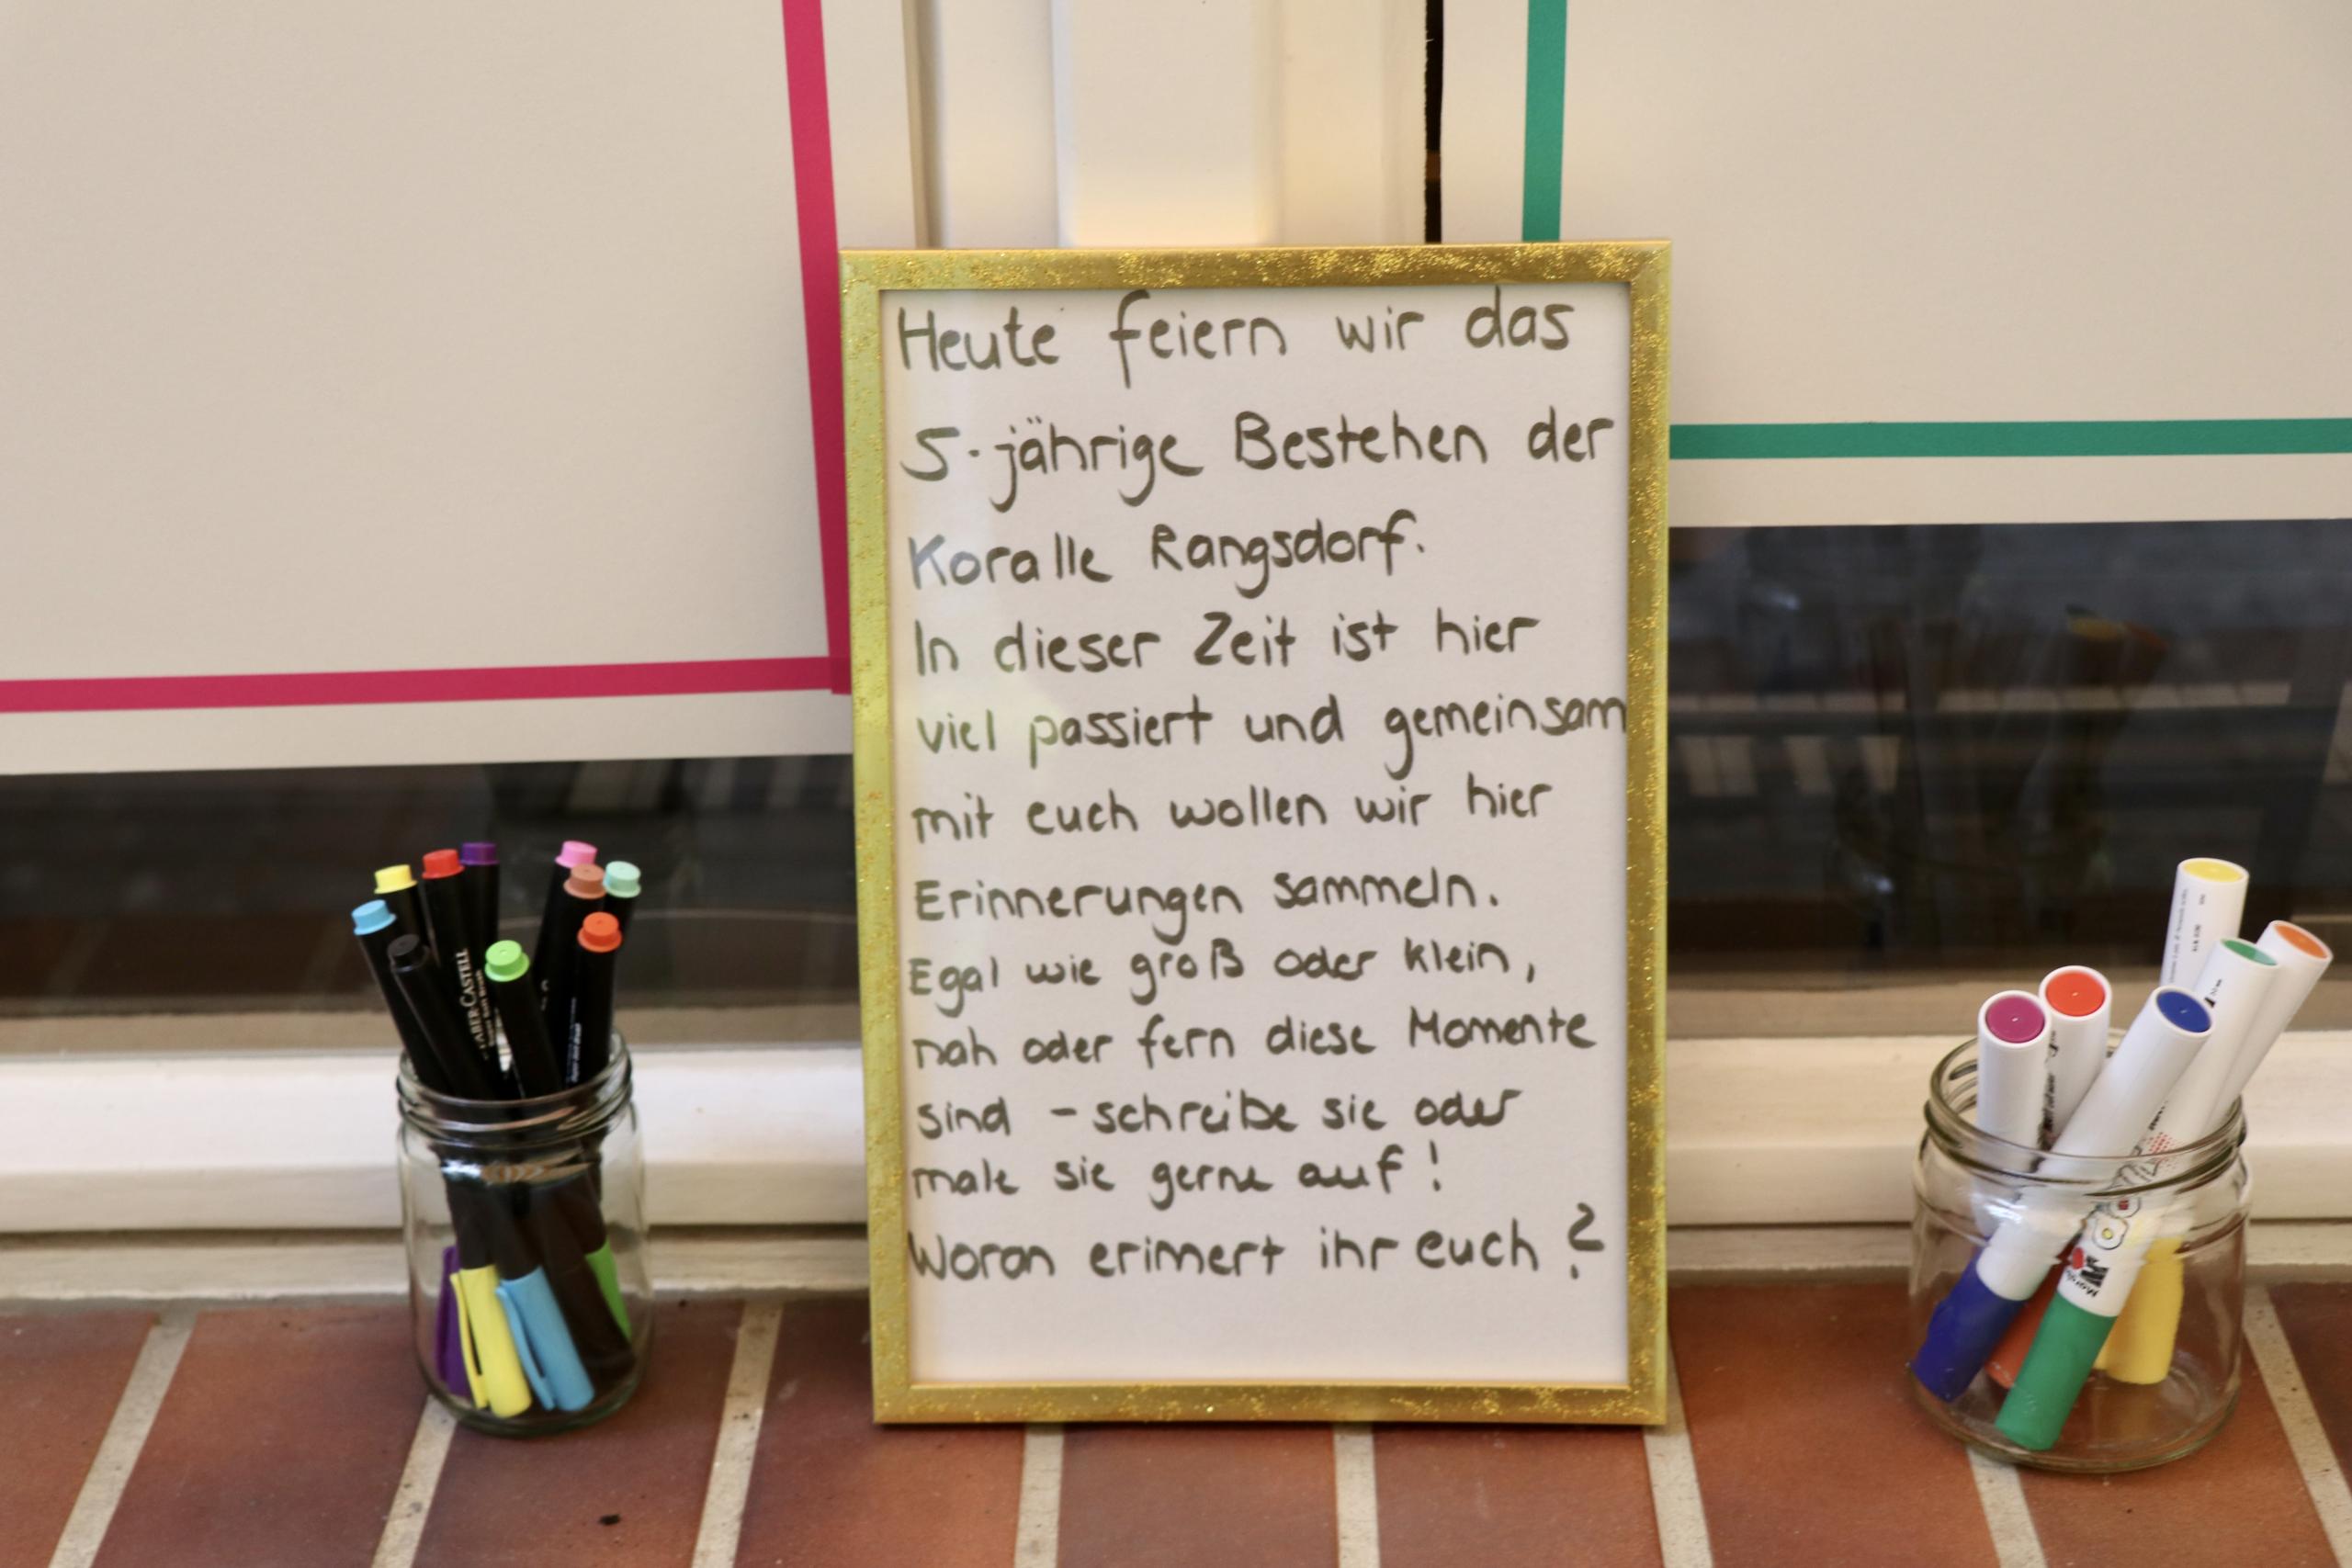 Heute feiern wir das
5-jährige Bestehen der
Koralle Rangsdorf.
In dieser Zeit ist hier
viel passiert und gemeinsam
mit euch wollen wir hier
Erinnerungen sammeln.
Egal wie groß oder klein,
nah oder fern diese Momente
sind - schreibe sie oder
male sie gerne auf!
Woran erinnert ihr euch?
FABER-CASTELL